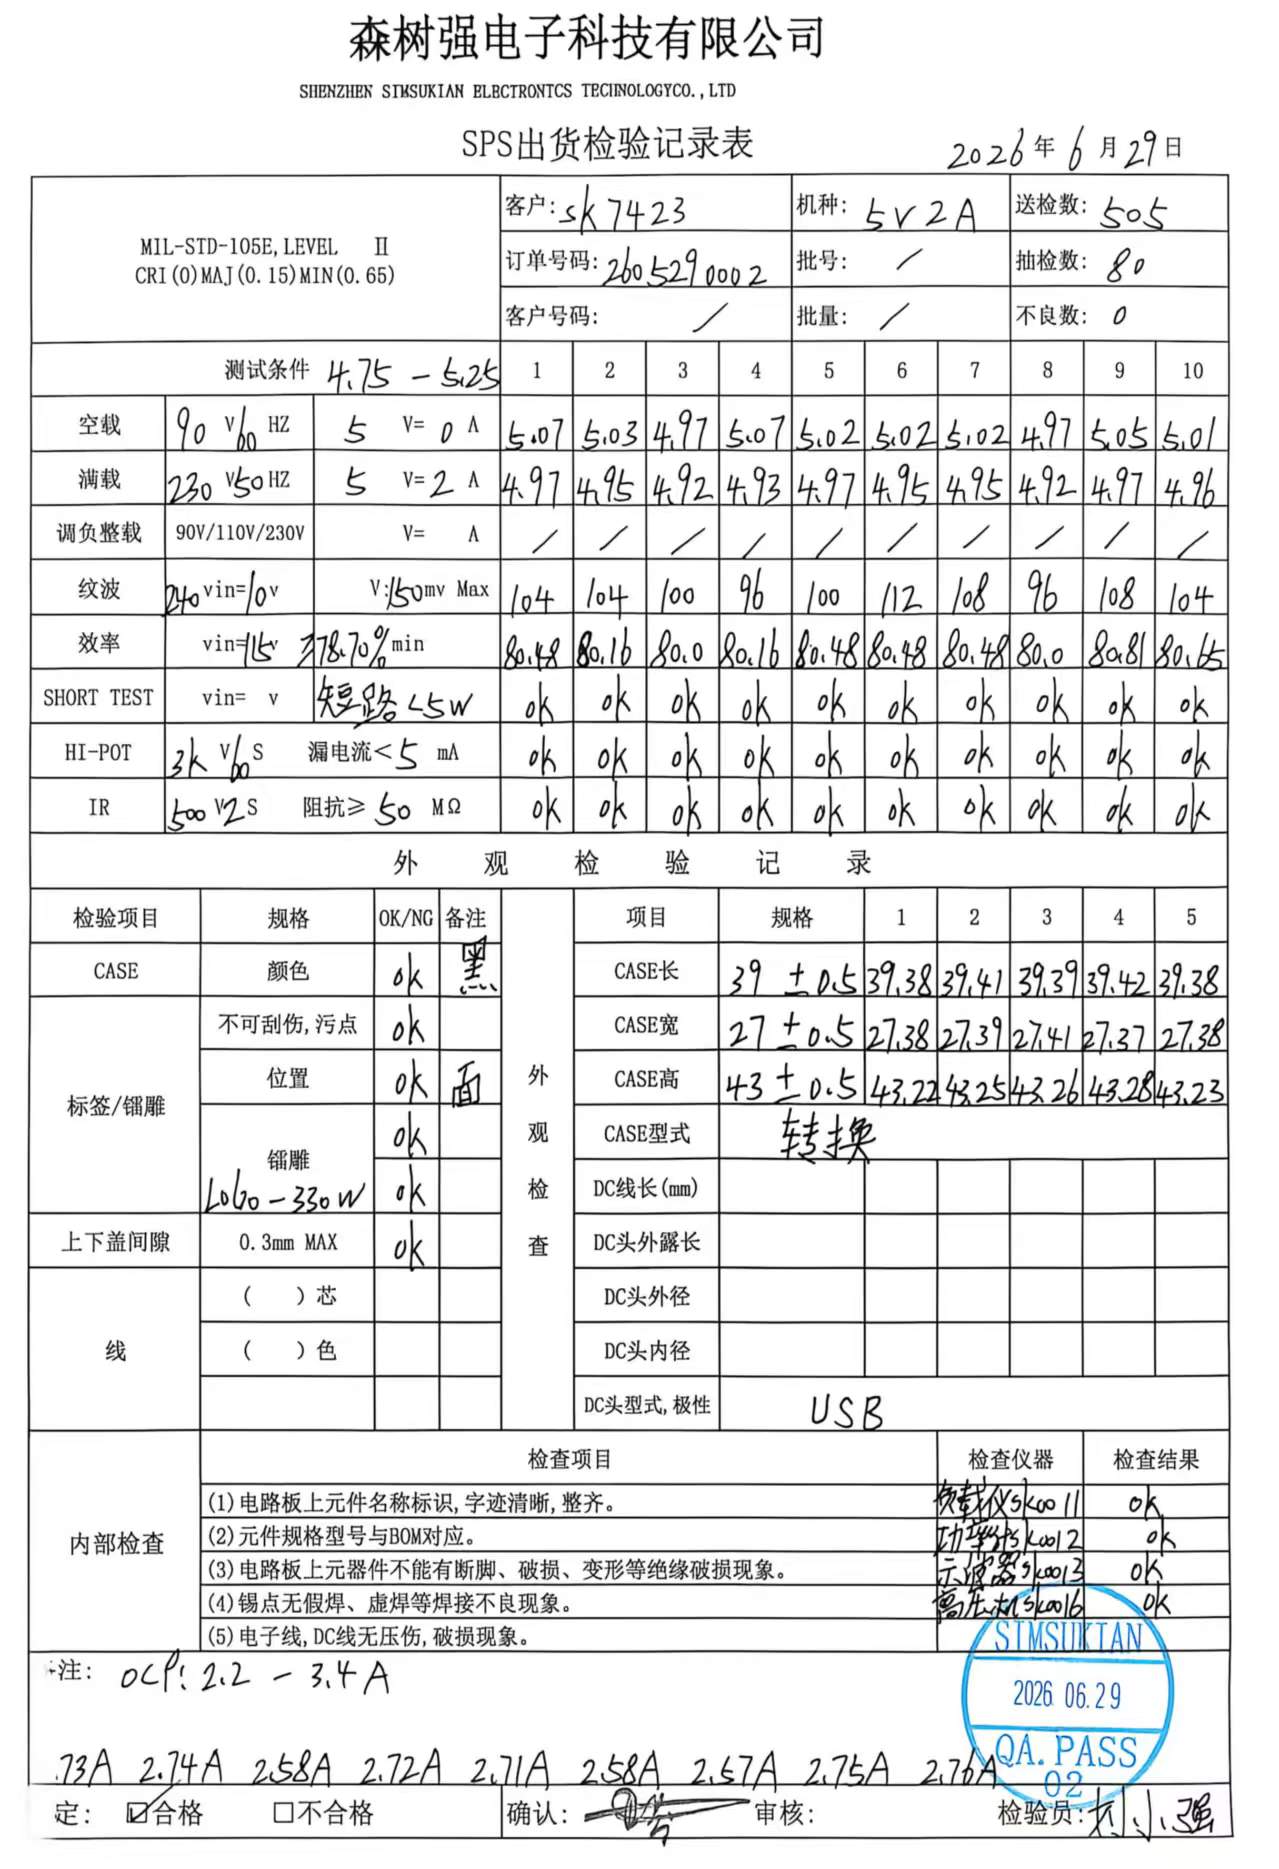 森树强电子科技有限公司
SHENZHEN SIMSUKIAN ELECTRONTCS TECHNOLOGYCO.,LTD
SPS出货检验记录表 2026年6月29日
MIL-STD-105E,LEVEL Ⅱ
CRI(0)MAJ(0.15)MIN(0.65)
客户: sk7423 机种: 5V2A 送检数: 505
订单号码: 2605290002 批号: / 抽检数: 80
客户号码: / 批量: / 不良数: 0
测试条件 4.75-5.25 1 2 3 4 5 6 7 8 9 10
空载 90 V60 HZ 5 V= 0 A 5.07 5.03 4.97 5.07 5.02 5.02 5.02 4.97 5.05 5.01
满载 230 V50 HZ 5 V= 2 A 4.97 4.95 4.92 4.93 4.97 4.95 4.95 4.92 4.97 4.96
调负整载 90V/110V/230V V= A / / / / / / / / / /
纹波 240 vin=10v V:150mv Max 104 104 100 96 100 112 108 96 108 104
效率 vin=115v ≥78.70% min 80.48 80.16 80.0 80.16 80.48 80.48 80.48 80.0 80.81 80.65
SHORT TEST vin= v 短路<5W ok ok ok ok ok ok ok ok ok ok
HI-POT 3k V60 S 漏电流< 5 mA ok ok ok ok ok ok ok ok ok ok
IR 500 V2 S 阻抗≥ 50 MΩ ok ok ok ok ok ok ok ok ok ok
外观检验记录
检验项目 规格 OK/NG 备注 项目 规格 1 2 3 4 5
CASE 颜色 ok 黑 CASE长 39 ±0.5 39.38 39.41 39.39 39.42 39.38
不可刮伤,污点 ok CASE宽 27 ±0.5 27.38 27.39 27.41 27.37 27.38
标签/镭雕 位置 ok 面 外观检查 CASE高 43 ±0.5 43.22 43.25 43.26 43.28 43.23
镭雕 ok CASE型式 转换
LOGO-330W ok DC线长(mm)
上下盖间隙 0.3mm MAX ok DC头外露长
线 ( )芯 DC头外径
( )色 DC头内径
DC头型式,极性 USB
内部检查 检查项目 检查仪器 检查结果
(1)电路板上元件名称标识,字迹清晰,整齐。 负载仪sk0011 ok
(2)元件规格型号与BOM对应。 功率计sk0012 ok
(3)电路板上元器件不能有断脚、破损、变形等绝缘破损现象。 示波器sk0013 ok
(4)锡点无假焊、虚焊等焊接不良现象。 高压机sk0016 ok
(5)电子线,DC线无压伤,破损现象。
SIMSUKIAN
2026.06.29
QA.PASS
02
注: OCP: 2.2-3.4A
.73A 2.74A 2.58A 2.72A 2.71A 2.58A 2.57A 2.75A 2.76A
定: ☑合格 □不合格 确认: 审核: 检验员: 刘小强